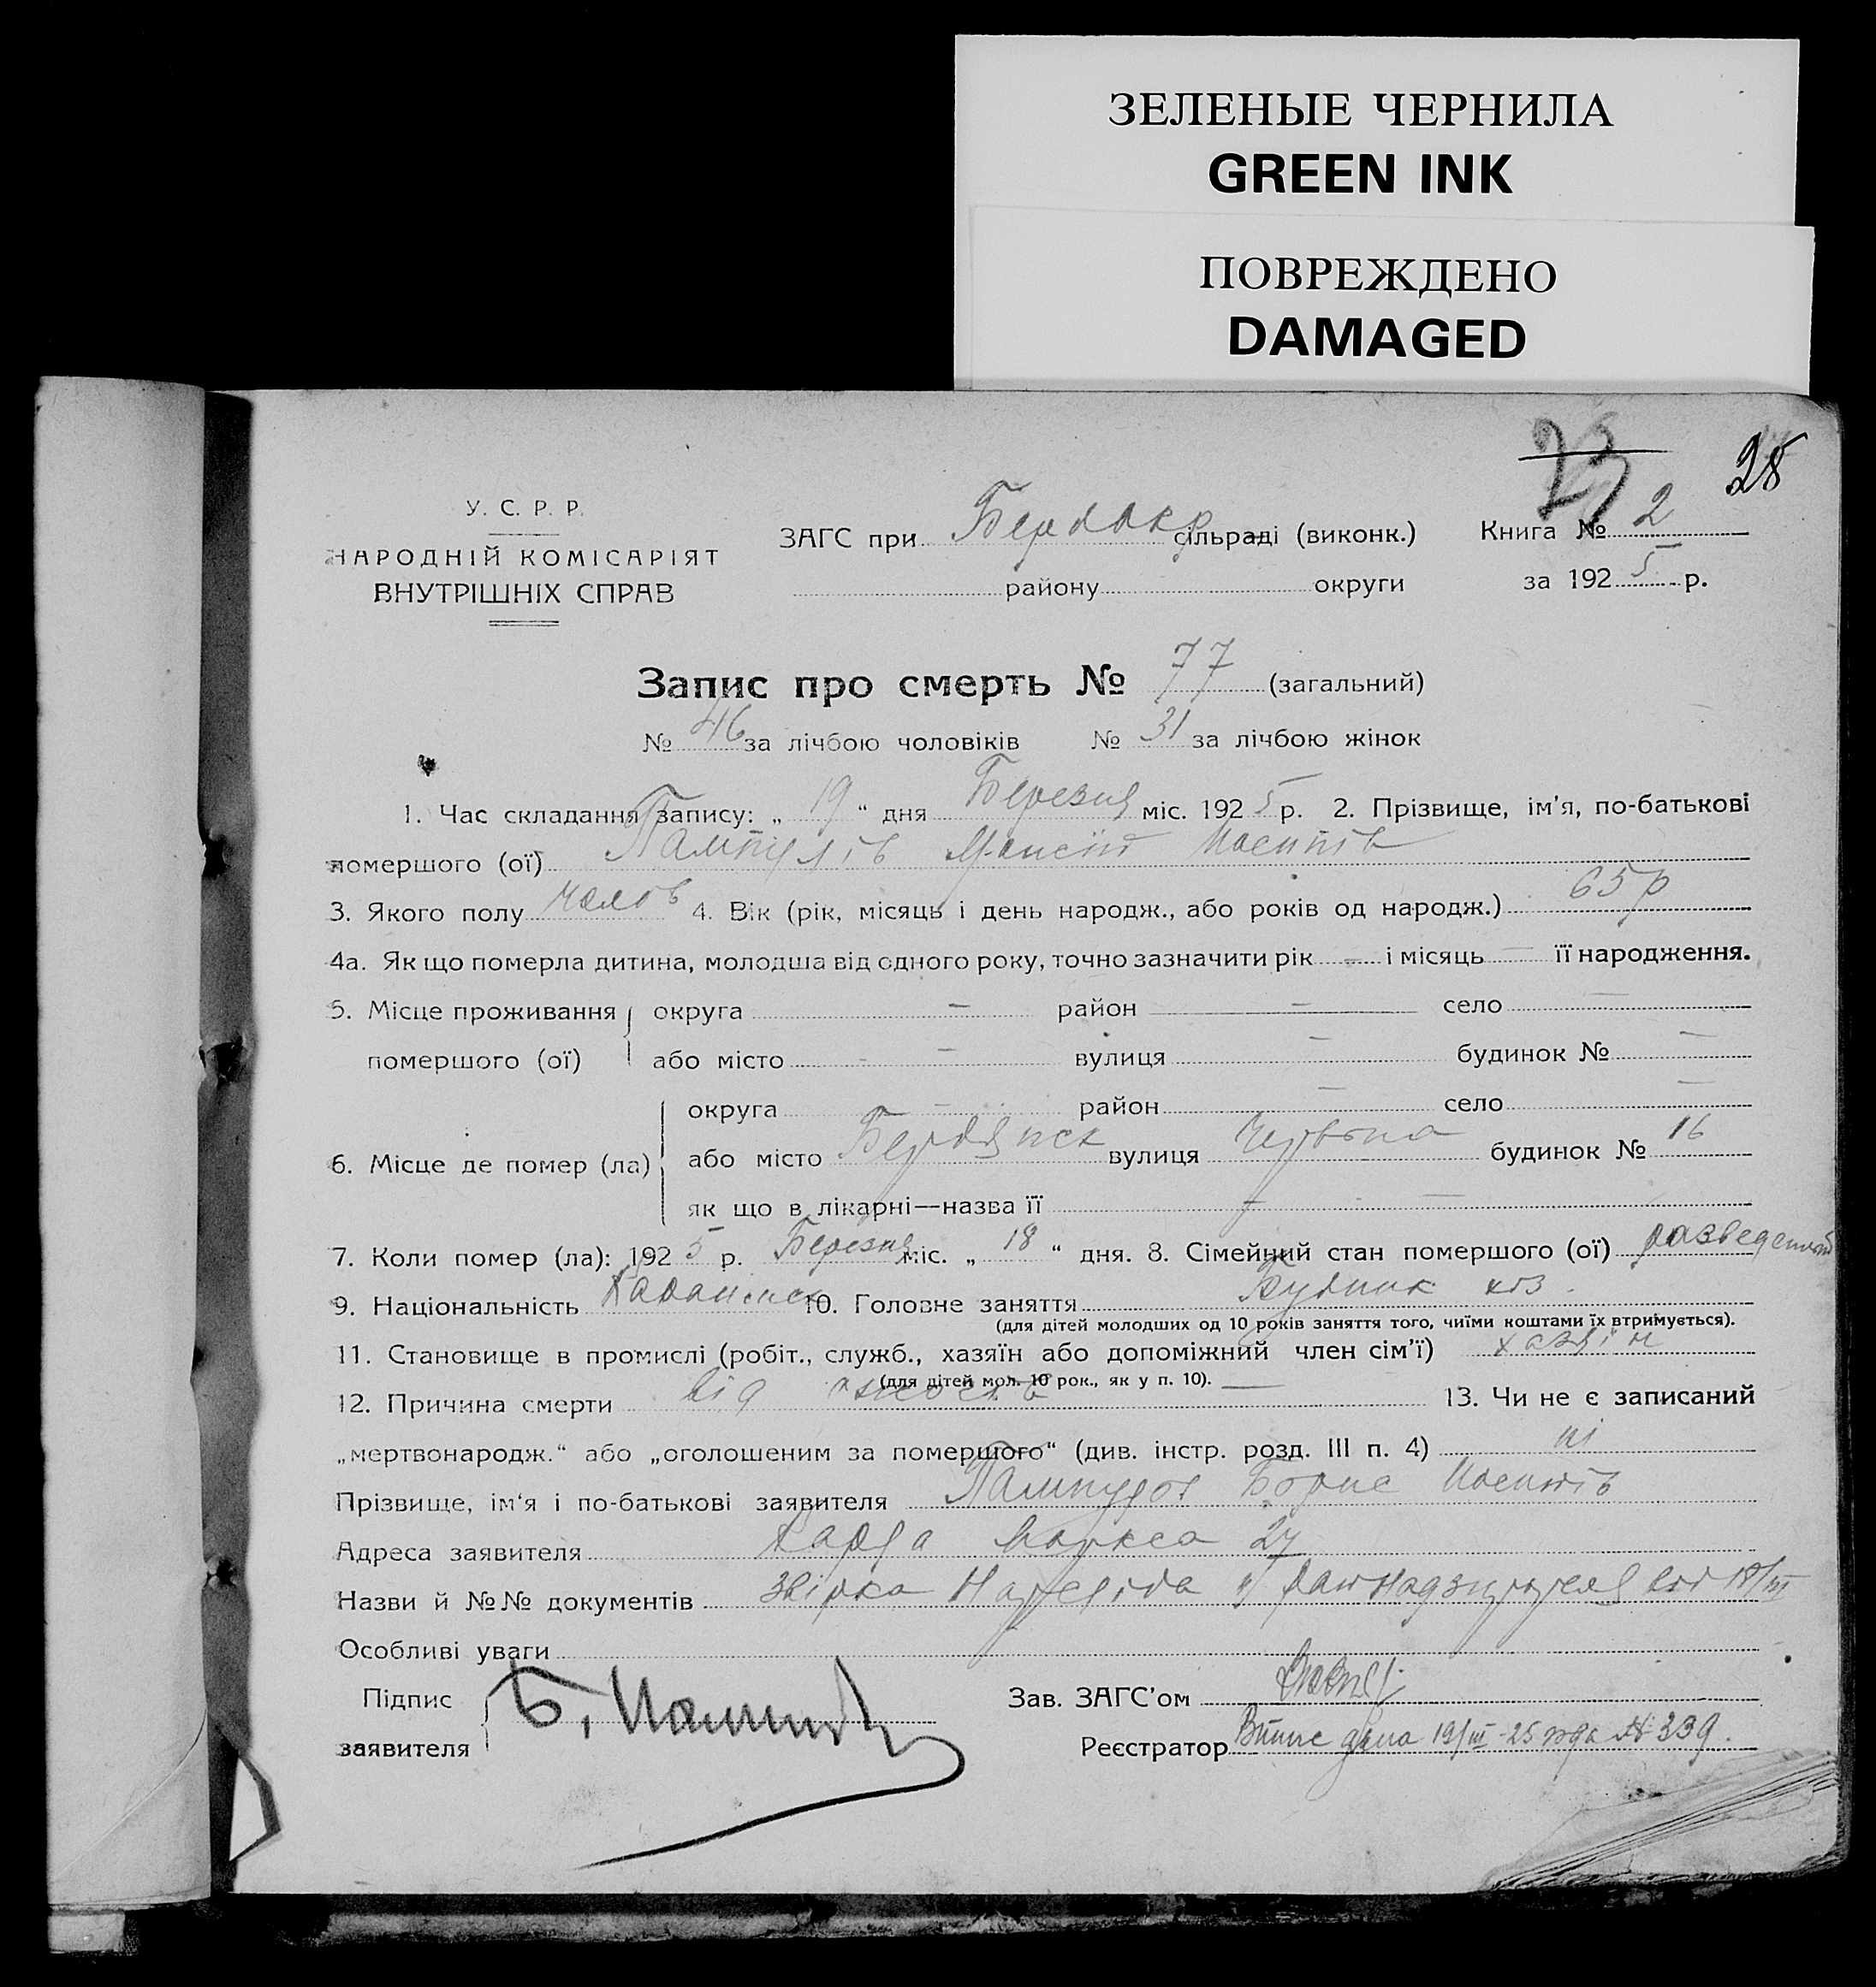 ЗЕЛЕНЫЕ ЧЕРНИЛА
GREEN INK
ПОВРЕЖДЕНО
DAMAGED
23 28
У. С. Р. Р.
НАРОДНІЙ КОМІСАРІЯТ
ВНУТРІШНІХ СПРАВ
ЗАГС при Бердокр сільраді (виконк.) Книга № 2
району округи за 1925 р.
Запис про смерть № 77 (загальний)
№ 46 за лічбою чоловіків № 31 за лічбою жінок
1. Час складання запису: „ 19 “ дня Березня міс. 1925 р. 2. Прізвище, ім’я, по-батькові
помершого (ої)
3. Якого полу чолов 4. Вік (рік, місяць і день народж., або років од народж.) 65 р
4а. Як що померла дитина, молодша від одного року, точно зазначити рік — і місяць — її народження.
5. Місце проживання округа — район — село —
помершого (ої) або місто — вулиця — будинок № —
округа — район — село —
6. Місце де помер (ла) або місто Бердянск вулиця Червона будинок № 16
як що в лікарні—назва її —
7. Коли помер (ла): 1925 р. Березня міс. „ 18 “ дня. 8. Сімейний стан помершого (ої)
9. Національність 10. Головне заняття
(для дітей молодших од 10 років заняття того, чиїми коштами їх втримується).
11. Становище в промислі (робіт., служб., хазяїн або допоміжний член сім’ї) хазяїн
(для дітей мол. 10 рок., як у п. 10). —
12. Причина смерти від 13. Чи не є записаний
„мертвонародж.“ або „оголошеним за помершого“ (див. інстр. розд. III п. 4) ні
Прізвище, ім‘я і по-батькові заявителя Борис
Адреса заявителя Карла Маркса 24
Назви й №№ документів
Особливі уваги
Підпис Зав. ЗАГС’ом
заявителя Реєстратор 19/III-25 № 339.